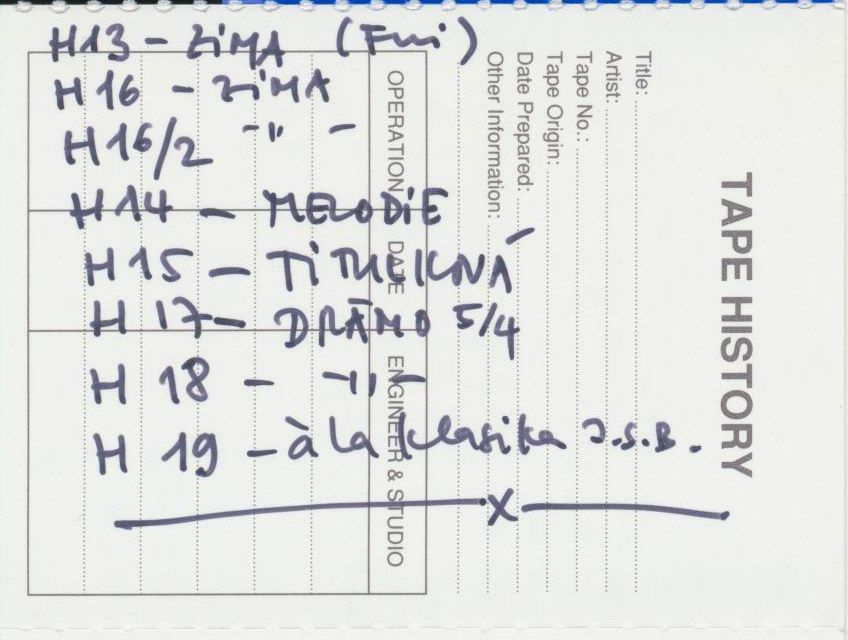 H13 - ZiMA (Fui)
H16 - ZiMA
H16/2 -"-
H14 - MELODiE
H15 - TiTULKOVÁ
H 17 - DRÁMO 5/4
H 18 - -"-
H 19 - à la klasika J.S.B.
X
TAPE HISTORY
Title:
Artist:
Tape No.:
Tape Origin:
Date Prepared:
Other Information:
OPERATION DATE ENGINEER & STUDIO